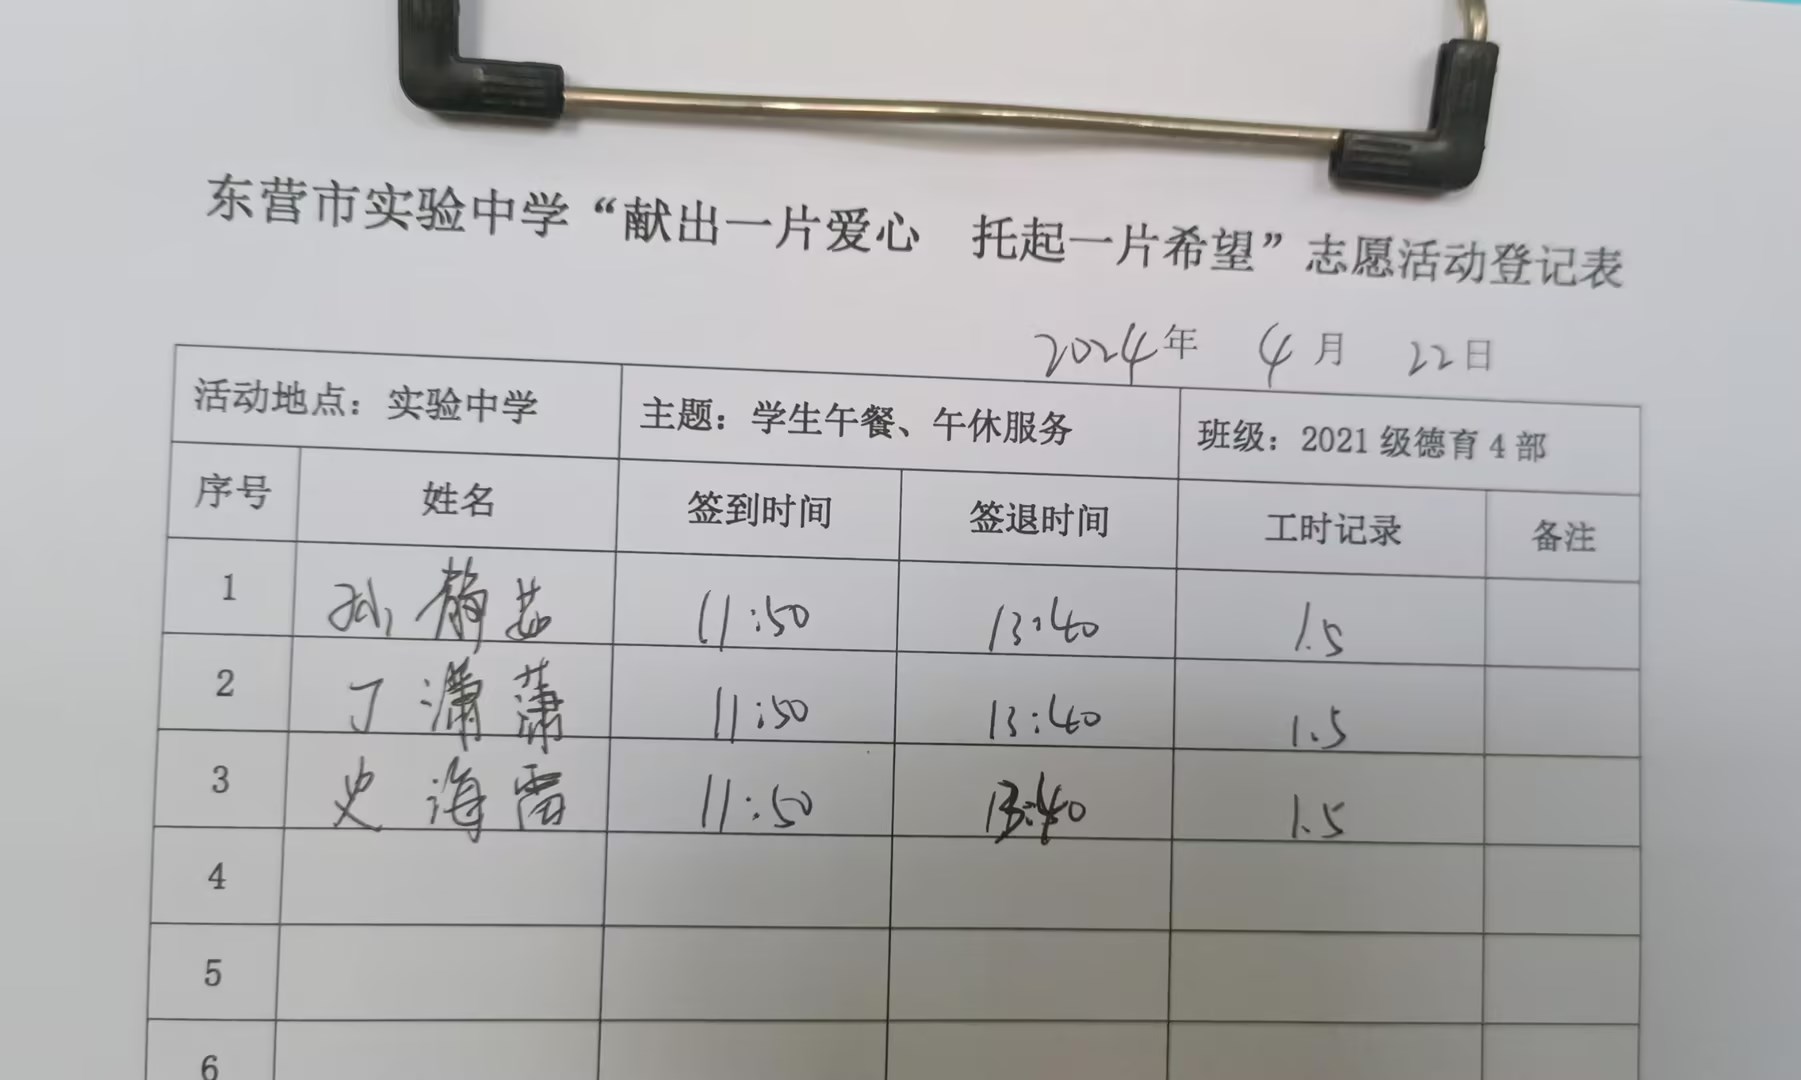 东营市实验中学“献出一片爱心 托起一片希望”志愿活动登记表
2024年 4月 22日
活动地点：实验中学 主题：学生午餐、午休服务 班级：2021级德育4部
序号 姓名 签到时间 签退时间 工时记录 备注
1 孙静茹 11:50 13:40 1.5
2 丁潇潇 11:50 13:40 1.5
3 史海雷 11:50 13:40 1.5
4
5
6